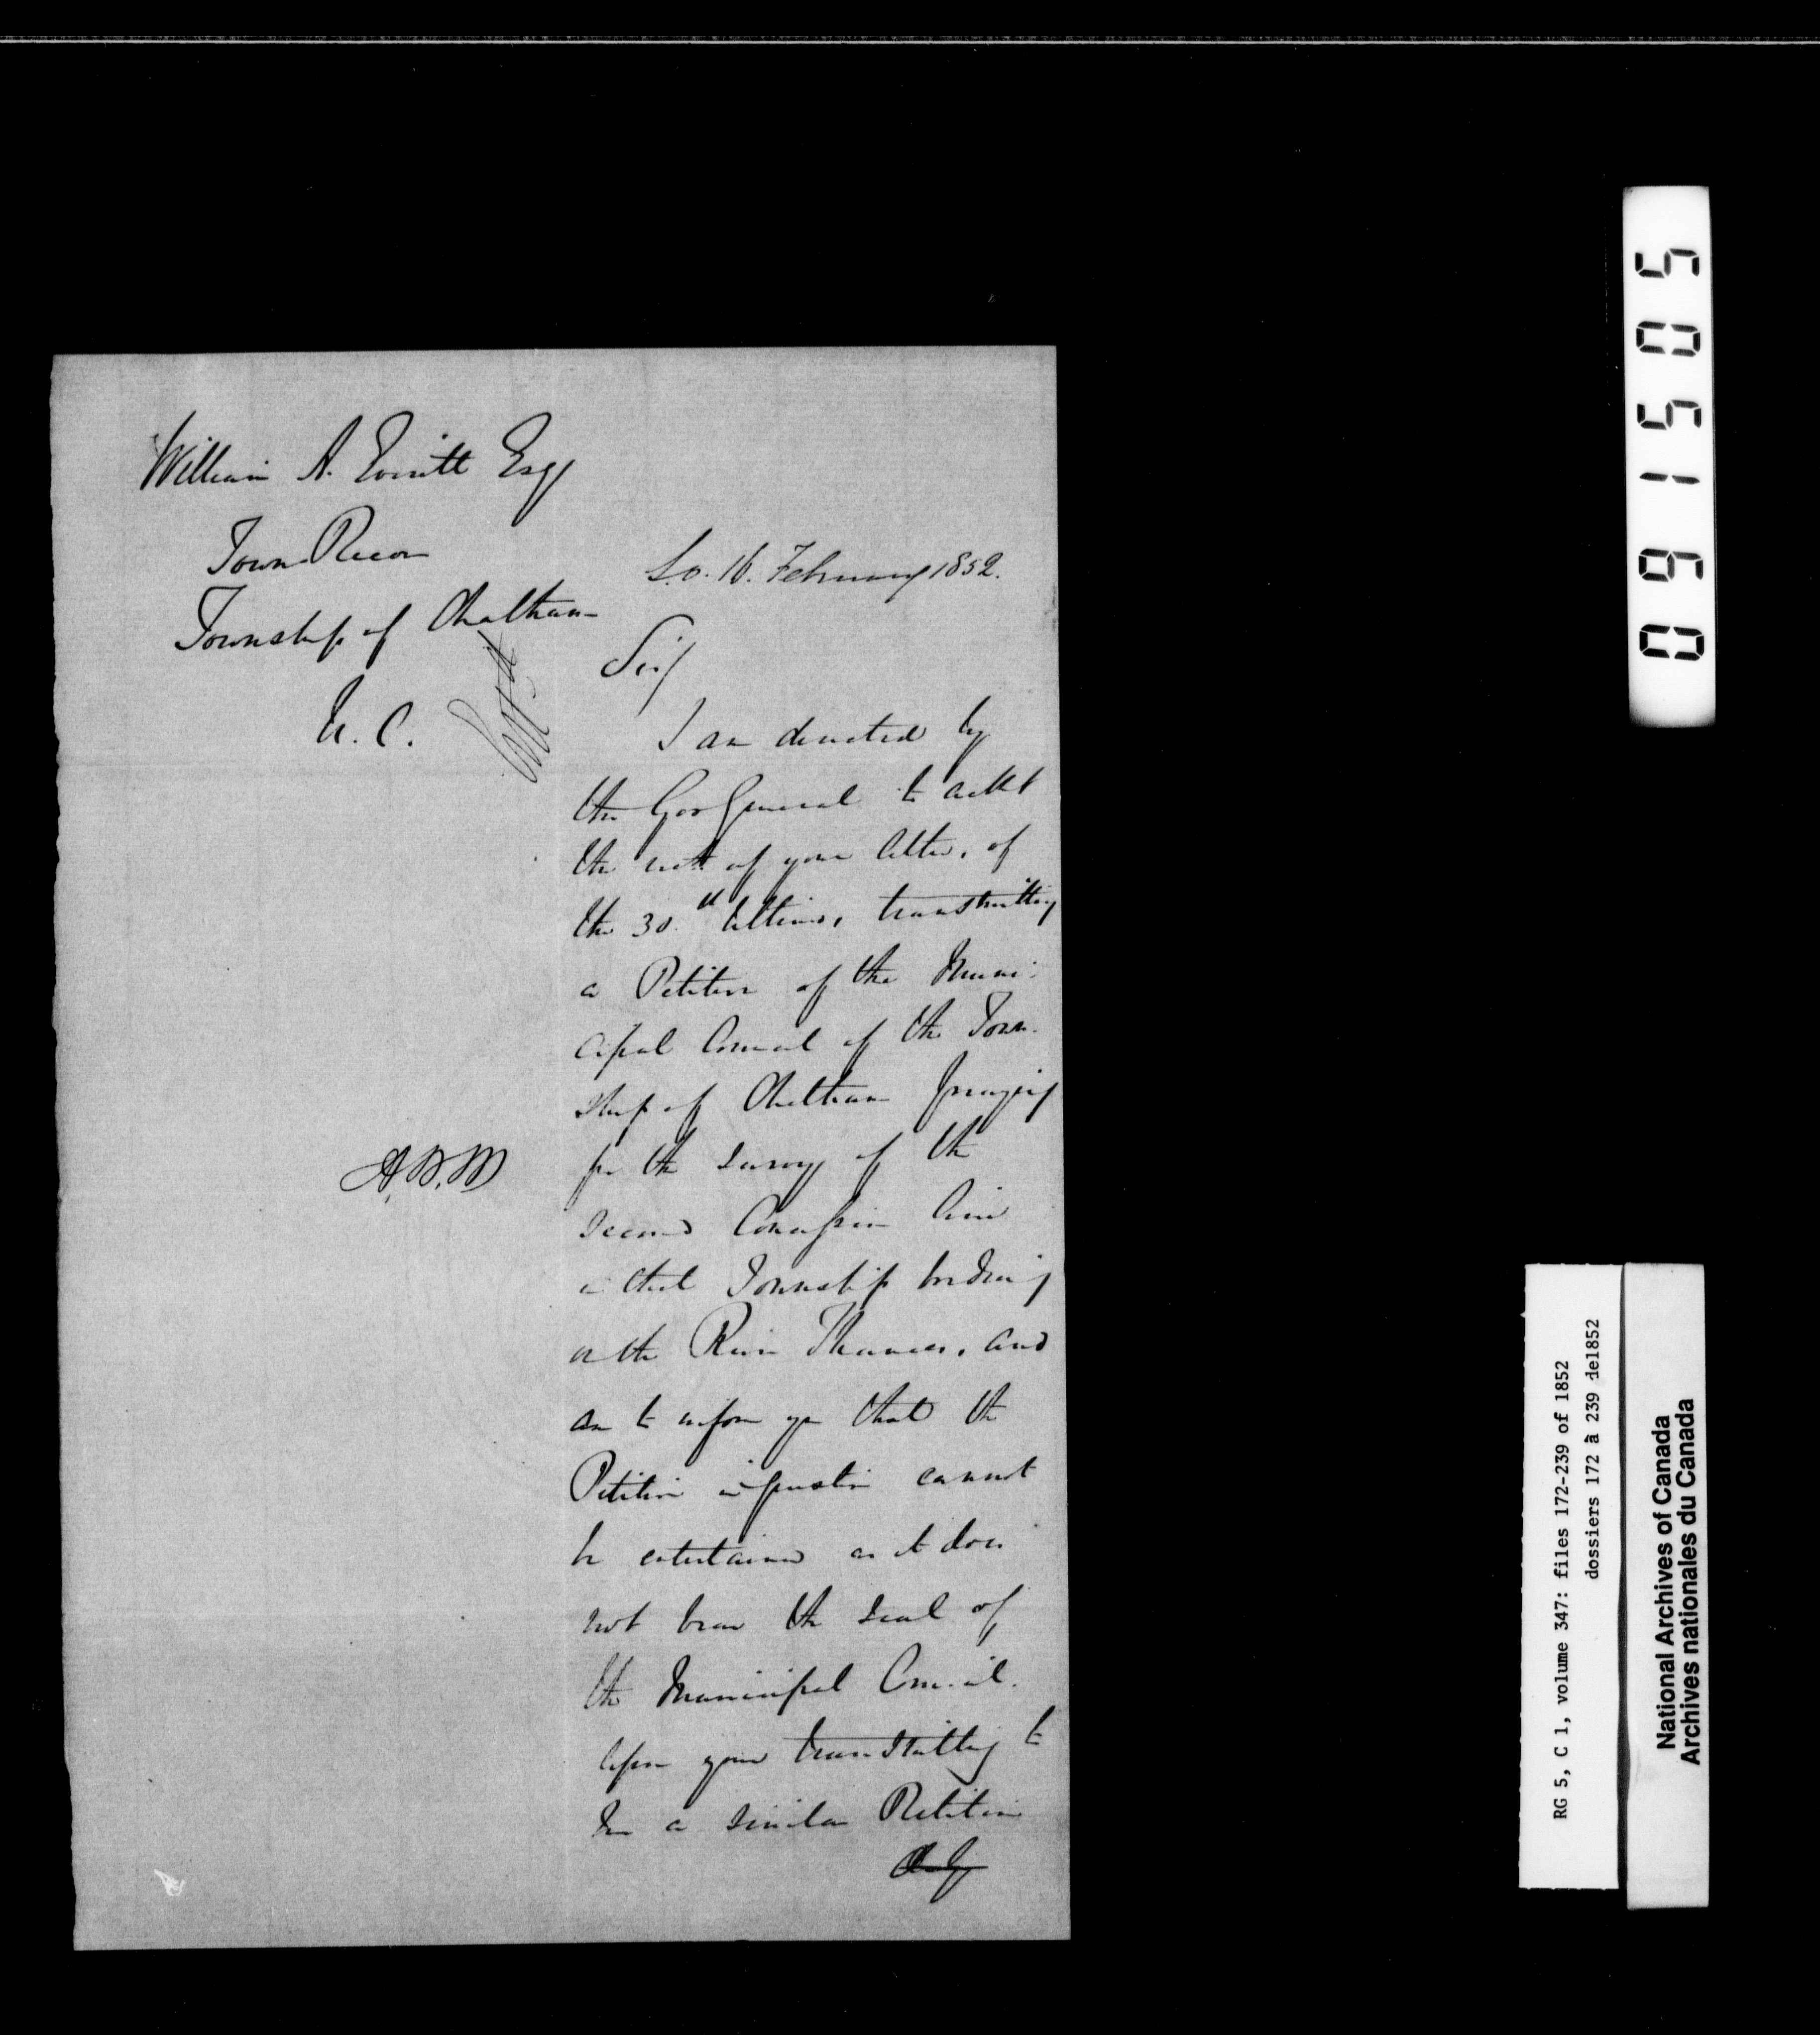 William A. Everitt Esq
Town Reeve
Township of Chatham
U. C.
S.O. 16. February 1852.
Sir/
I am directed by
the Gov General to ackt
the rect of your letter, of
the 30.th Ultimo, transmitting
a Petition of the Muni-
cipal Council of the Town-
ship of Chatham praying
for the survey of the
second Concession line
in that Township fronting
on the River Thames, and
am to inform you that the
Petition in question cannot
be entertained as it does
not bear the seal of
the Municipal Council.
Upon your transmitting to
me a similar Petition
A.N.M
091505
RG 5, C 1, volume 347: files 172-239 of 1852
dossiers 172 à 239 de1852
National Archives of Canada
Archives nationales du Canada